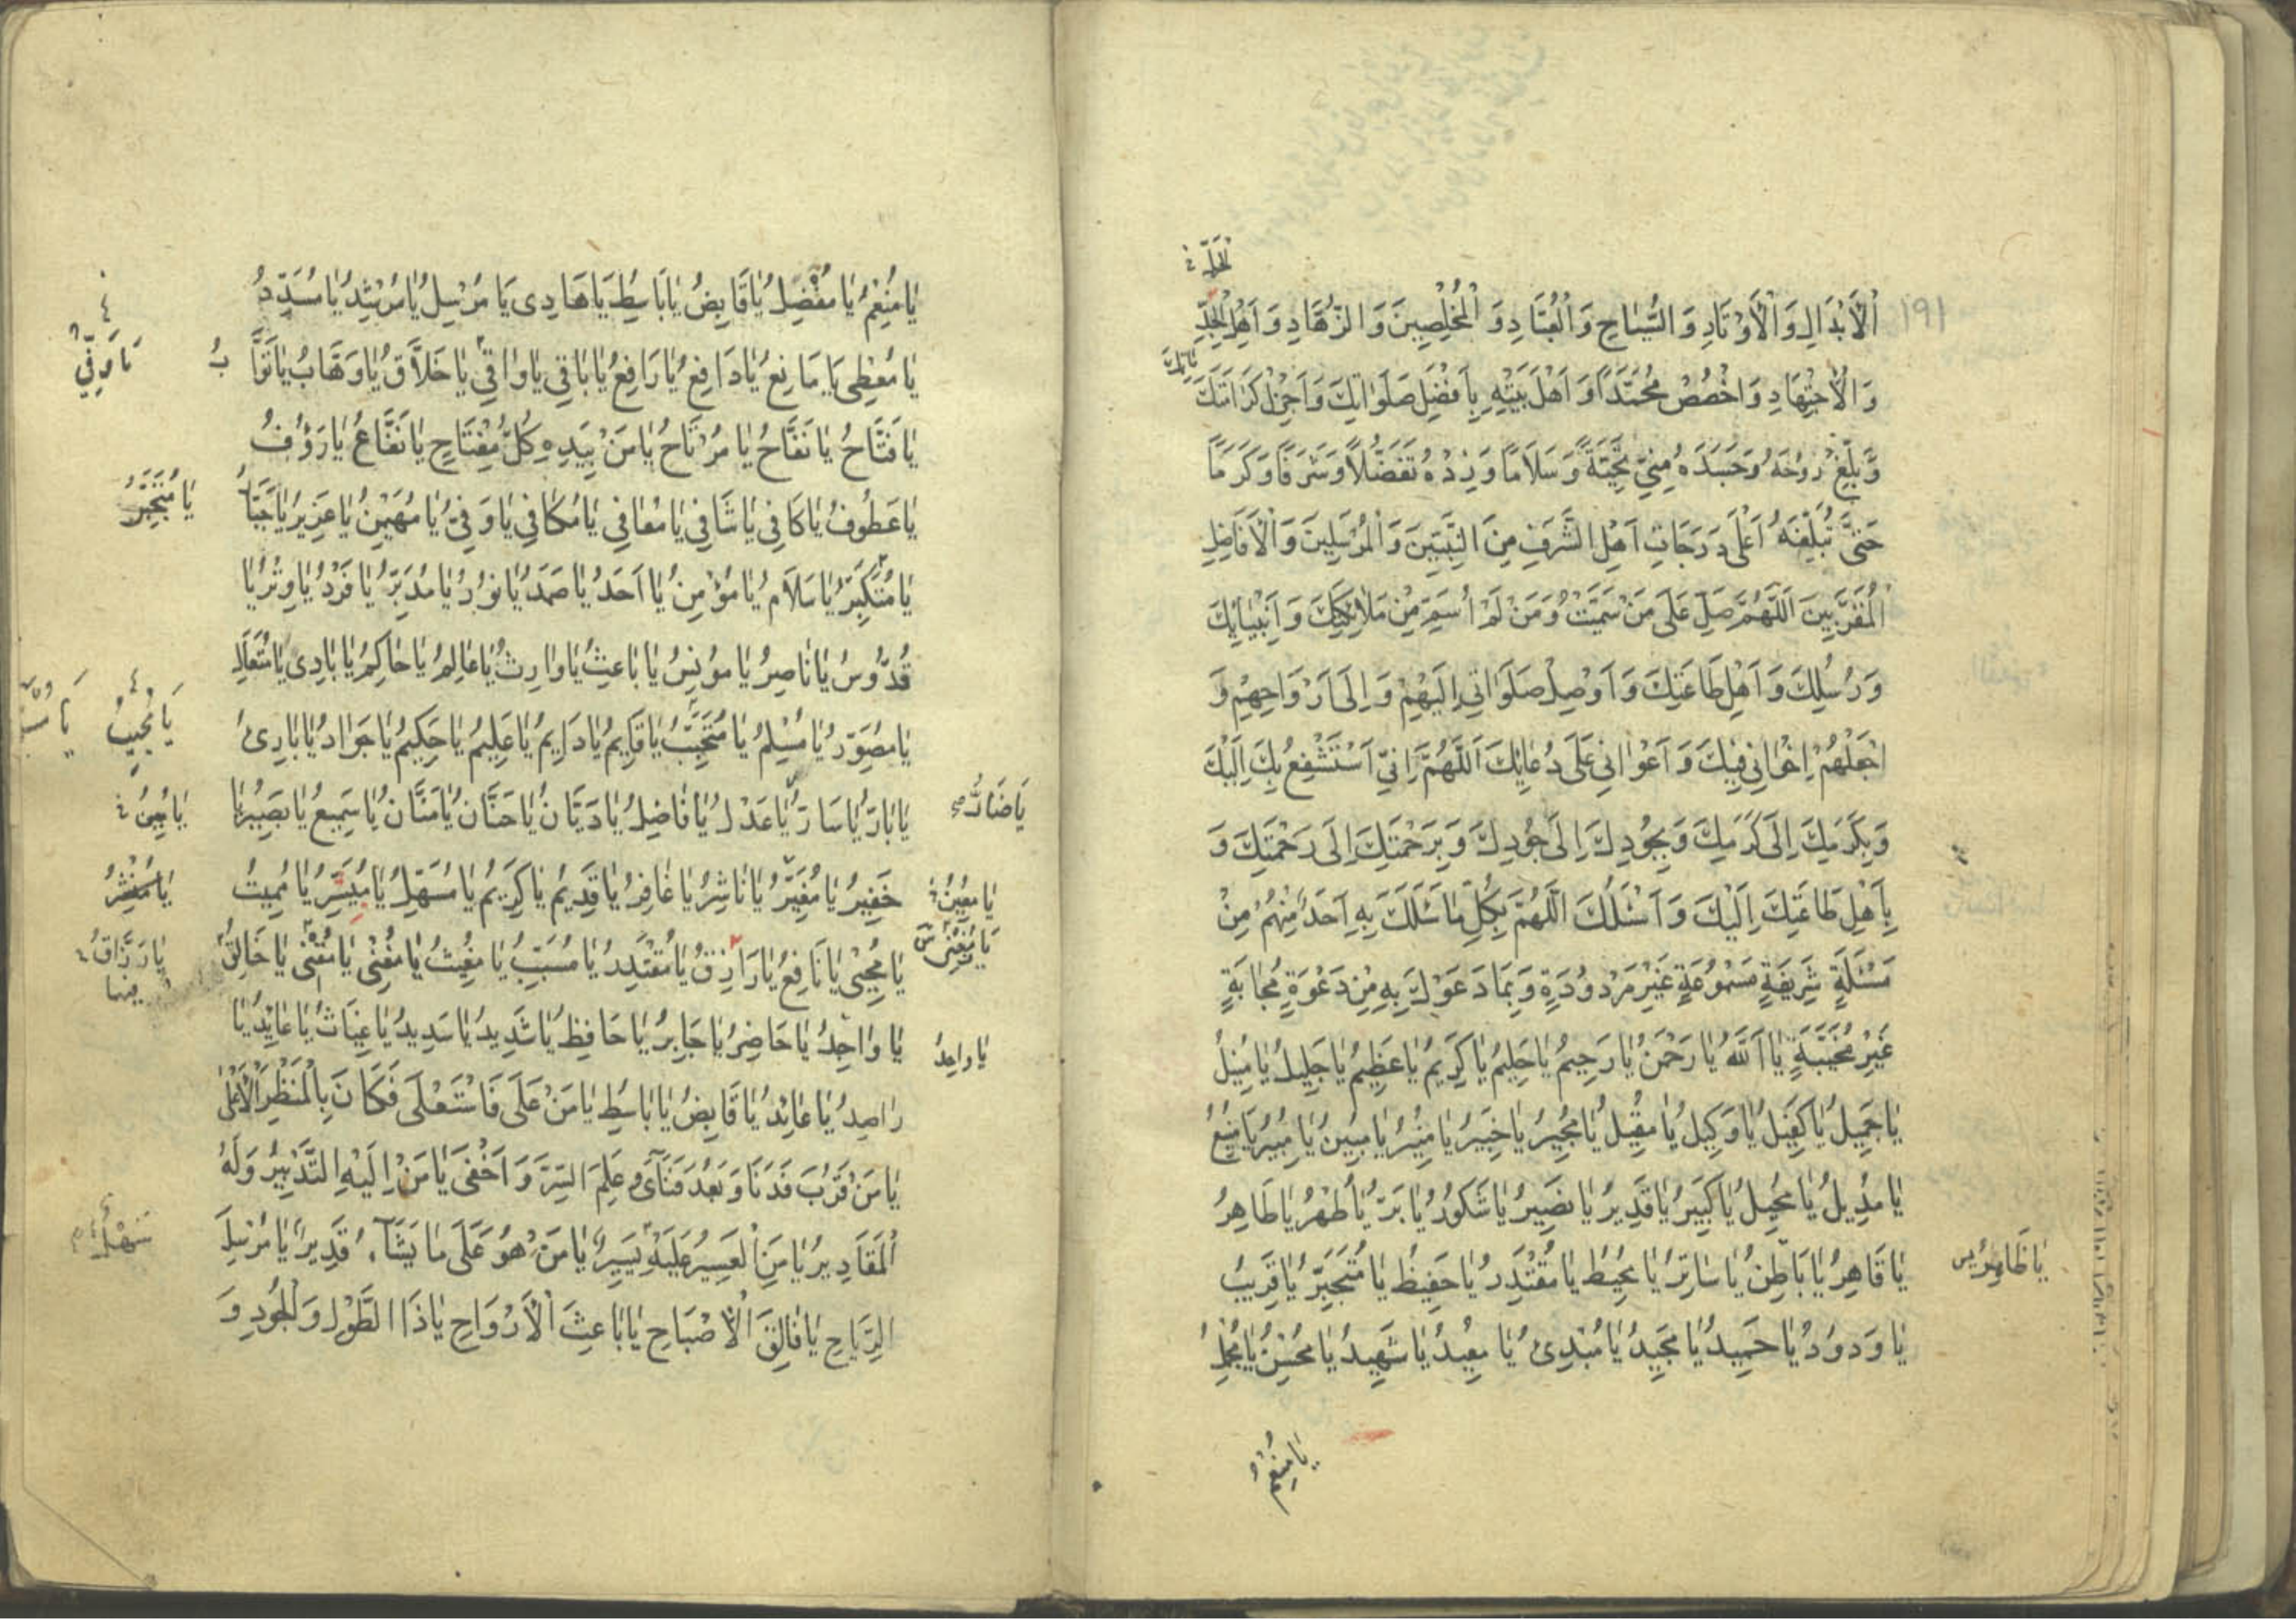 ١٩١
اَلْاَبْدَالِ وَالْاَوْتَادِ وَالسُّيَّاحِ وَالْعُبَّادِ وَالْمُخْلِصِينَ وَالزُّهَّادِ وَاَهْلِ الْجِدِّ
وَالْاِجْتِهَادِ وَاخْصُصْ مُحَمَّدًا وَاَهْلَ بَيْتِهِ بِاَفْضَلِ صَلَوَاتِكَ وَاَجْزَلِ كَرَامَتِكَ
وَبَلِّغْ رُوحَهُ وَجَسَدَهُ مِنِّي تَحِيَّةً وَسَلَامًا وَزِدْهُ تَفَضُّلًا وَشَرَفًا وَكَرَمًا
حَتّٰى تُبَلِّغَهُ اَعْلٰى دَرَجَاتِ اَهْلِ الشَّرَفِ مِنَ النَّبِيِّينَ وَالْمُرْسَلِينَ وَالْاَفَاضِلِ
الْمُقَرَّبِينَ اَللّٰهُمَّ صَلِّ عَلٰى مَنْ سَمَّيْتُ وَمَنْ لَمْ اُسَمِّ مِنْ مَلَائِكَتِكَ وَاَنْبِيَائِكَ
وَرُسُلِكَ وَاَهْلِ طَاعَتِكَ وَاَوْصِلْ صَلَوَاتِي اِلَيْهِمْ وَاِلٰى اَرْوَاحِهِمْ وَ
اجْعَلْهُمْ اِخْوَانِي فِيكَ وَاَعْوَانِي عَلٰى دُعَائِكَ اَللّٰهُمَّ اِنِّي اَسْتَشْفِعُ بِكَ اِلَيْكَ
وَبِكَرَمِكَ اِلٰى كَرَمِكَ وَبِجُودِكَ اِلٰى جُودِكَ وَبِرَحْمَتِكَ اِلٰى رَحْمَتِكَ وَ
بِاَهْلِ طَاعَتِكَ اِلَيْكَ وَاَسْئَلُكَ اللّٰهُمَّ بِكُلِّ مَا سَئَلَكَ بِهِ اَحَدٌ مِنْهُمْ مِنْ
مَسْئَلَةٍ شَرِيفَةٍ مَسْمُوعَةٍ غَيْرِ مَرْدُودَةٍ وَبِمَا دَعَوْكَ بِهِ مِنْ دَعْوَةٍ مُجَابَةٍ
غَيْرِ مُخَيَّبَةٍ يَا اَللّٰهُ يَا رَحْمٰنُ يَا رَحِيمُ يَا حَلِيمُ يَا كَرِيمُ يَا عَظِيمُ يَا جَلِيلُ يَا مُنِيلُ
يَا جَمِيلُ يَا كَفِيلُ يَا وَكِيلُ يَا مُقِيلُ يَا مُجِيرُ يَا خَبِيرُ يَا مُنِيرُ يَا مُبِينُ يَا مُبِيرُ يَا مَنِيعُ
يَا مُدِيلُ يَا مُحِيلُ يَا كَبِيرُ يَا قَدِيرُ يَا نَصِيرُ يَا شَكُورُ يَا بَرُّ يَا طُهْرُ يَا طَاهِرُ
يَا قَاهِرُ يَا بَاطِنُ يَا سَاتِرُ يَا مُحِيطُ يَا مُقْتَدِرُ يَا حَفِيظُ يَا مُتَجَبِّرُ يَا قَرِيبُ
يَا وَدُودُ يَا حَمِيدُ يَا مَجِيدُ يَا مُبْدِئُ يَا مُعِيدُ يَا شَهِيدُ يَا مُحْسِنُ يَا مُجْمِلُ
يَا ظَاهِرُ
يَا مُنْعِمُ
يَا مُنْعِمُ يَا مُفْضِلُ يَا قَابِضُ يَا بَاسِطُ يَا هَادِى يَا مُرْسِلُ يَا مُرْشِدُ يَا مُسَدِّدُ
يَا مُعْطِى يَا مَانِعُ يَا دَافِعُ يَا رَافِعُ يَا بَاقِى يَا وَاقِى يَا خَلَّاقُ يَا وَهَّابُ يَا تَوَّابُ
يَا فَتَّاحُ يَا نَفَّاحُ يَا مُرْتَاحُ يَا مَنْ بِيَدِهِ كُلُّ مِفْتَاحٍ يَا نَفَّاعُ يَا رَؤُفُ
يَا عَطُوفُ يَا كَافِى يَا شَافِى يَا مُعَافِى يَا مُكَافِى يَا وَفِىُّ يَا مُهَيْمِنُ يَا عَزِيزُ يَا جَبَّارُ
يَا مُتَكَبِّرُ يَا سَلَامُ يَا مُؤْمِنُ يَا اَحَدُ يَا صَمَدُ يَا نُورُ يَا مُدَبِّرُ يَا فَرْدُ يَا وِتْرُ يَا
قُدُّوسُ يَا نَاصِرُ يَا مُونِسُ يَا بَاعِثُ يَا وَارِثُ يَا عَالِمُ يَا حَاكِمُ يَا بَادِى يَا مُتَعَالِ
يَا مُصَوِّرُ يَا مُسْلِمُ يَا مُتَحَبِّبُ يَا قَايِمُ يَا دَايِمُ يَا عَلِيمُ يَا حَكِيمُ يَا جَوَادُ يَا بَارِئُ
يَا بَارُّ يَا سَارُّ يَا عَدْلُ يَا فَاضِلُ يَا دَيَّانُ يَا حَنَّانُ يَا مَنَّانُ يَا سَمِيعُ يَا بَصِيرُ يَا
خَفِيرُ يَا مُغَيِّرُ يَا نَاشِرُ يَا غَافِرُ يَا قَدِيمُ يَا كَرِيمُ يَا مُسَهِّلُ يَا مُيَسِّرُ يَا مُمِيتُ
يَا مُحْيِى يَا نَافِعُ يَا رَازِقُ يَا مُقْتَدِرُ يَا مُسَبِّبُ يَا مُغِيثُ يَا مُغْنِى يَا مُقْنِى يَا خَالِقُ
يَا وَاحِدُ يَا حَاضِرُ يَا جَابِرُ يَا حَافِظُ يَا شَدِيدُ يَا سَدِيدُ يَا غِيَاثُ يَا عَائِدُ يَا
رَاصِدُ يَا عَائِدُ يَا قَابِضُ يَا بَاسِطُ يَا مَنْ عَلٰى فَاسْتَعْلٰى فَكَانَ بِالْمَنْظَرِ الْاَعْلٰى
يَا مَنْ قَرُبَ فَدَنَا وَبَعُدَ فَنَآىٰ وَعَلِمَ السِّرَّ وَاَخْفٰى يَا مَنْ اِلَيْهِ التَّدْبِيرُ وَلَهُ
الْمَقَادِيرُ يَا مَنِ الْعَسِيرُ عَلَيْهِ يَسِيرٌ يَا مَنْ هُوَ عَلٰى مَا يَشَآءُ قَدِيرٌ يَا مُرْسِلَ
الرِّيَاحِ يَا فَالِقَ الْاَصْبَاحِ يَا بَاعِثَ الْاَرْوَاحِ يَا ذَا الطَّوْلِ وَالْجُودِ وَ
يَا وَفِىُّ
يَا مُتَجَبِّرُ
يَا مُجِيبُ
يَا رَزَّاقُ
يَا ضَارُّ
يَا مُعِينُ
يَا وَاحِدُ
سَهْلٌ